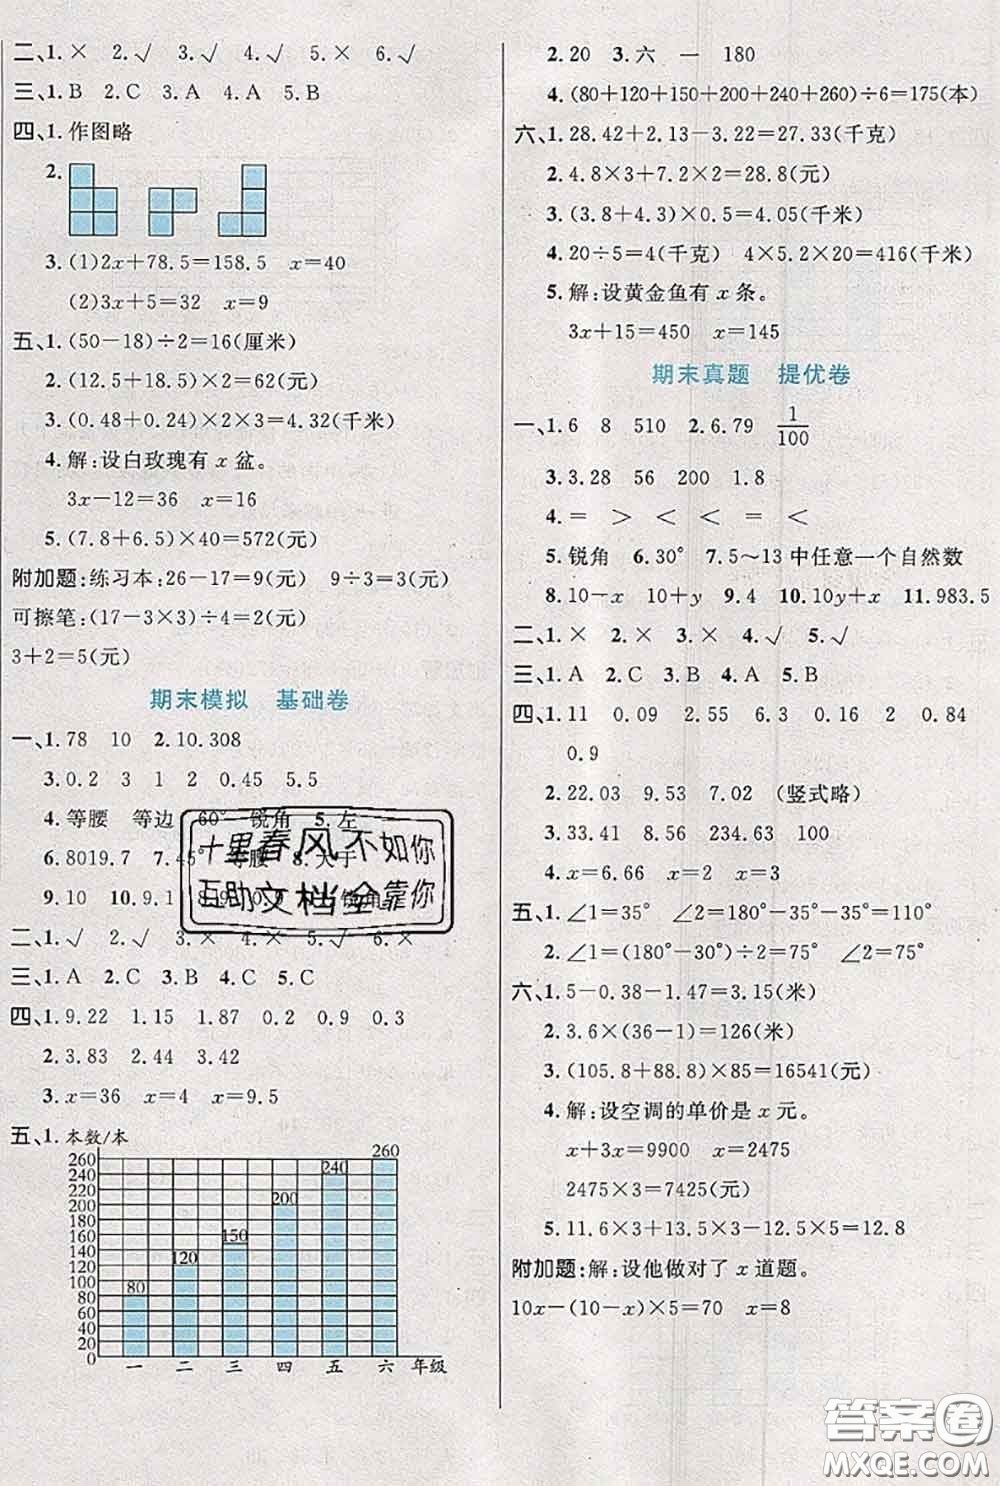 二、1.× 2.√ 3.√ 4.√ 5.× 6.√
三、1.B 2.C 3.A 4.A 5.B
四、1.作图略
2.
3.(1)2x+78.5=158.5 x=40
(2)3x+5=32 x=9
五、1.(50-18)÷2=16(厘米)
2.(12.5+18.5)×2=62(元)
3.(0.48+0.24)×2×3=4.32(千米)
4.解:设白玫瑰有x盆。
3x-12=36 x=16
5.(7.8+6.5)×40=572(元)
附加题:练习本:26-17=9(元) 9÷3=3(元)
可擦笔:(17-3×3)÷4=2(元)
3+2=5(元)
期末模拟 基础卷
一、1.78 10 2.10.308
3.0.2 3 1 2 0.45 5.5
4.等腰 等边 60° 锐角 5.左
6.8019.7 7.45° 等腰 8.大于
9.10 10.9.1 8.9 0.9 锐角
二、1.√ 2.√ 3.× 4.× 5.√ 6.×
三、1.A 2.C 3.B 4.C 5.C
四、1.9.22 1.15 1.87 0.2 0.9 0.3
2.3.83 2.44 2.4
3.x=4 x=4 x=9.5
五、1.本数/本
260
240
220
200
180
160
140
120
100
80
60
40
20
0
80 120 150 200 240 260
一 二 三 四 五 六 年级
十里春风不如你
互助文档全靠你
2.20 3.六 一 180
4.(80+120+150+200+240+260)÷6=175(本)
六、1.28.42+2.13-3.22=27.33(千克)
2.4.8×3+7.2×2=28.8(元)
3.(3.8+4.3)×0.5=4.05(千米)
4.20÷5=4(千克) 4×5.2×20=416(千米)
5.解:设黄金鱼有x条。
3x+15=450 x=145
期末真题 提优卷
一、1.6 8 510 2.6.79 1/100
3.3.28 56 200 1.8
4.= > < < = <
5.锐角 6.30° 7.5~13中任意一个自然数
8.10-x 10+y 9.4 10.10y+x 11.983.5
二、1.× 2.× 3.× 4.√ 5.√
三、1.A 2.C 3.B 4.A 5.B
四、1.11 0.09 2.55 6.3 0.16 2 0.84
0.9
2.22.03 9.53 7.02 (竖式略)
3.33.41 8.56 234.63 100
4.x=0.86 x=4 x=5
五、1.∠1=35° ∠2=180°-35°-35°=110°
2.∠1=(180°-30°)÷2=75° ∠2=75°
六、1.5-0.38-1.47=3.15(米)
2.3.6×(36-1)=126(米)
3.(105.8+88.8)×85=16541(元)
4.解:设空调的单价是x元。
x+3x=9900 x=2475
2475×3=7425(元)
5.11.6×3+13.5×3-12.5×5=12.8
附加题:解:设他做对了x道题。
10x-(10-x)×5=70 x=8
答案圈
MXQE.COM